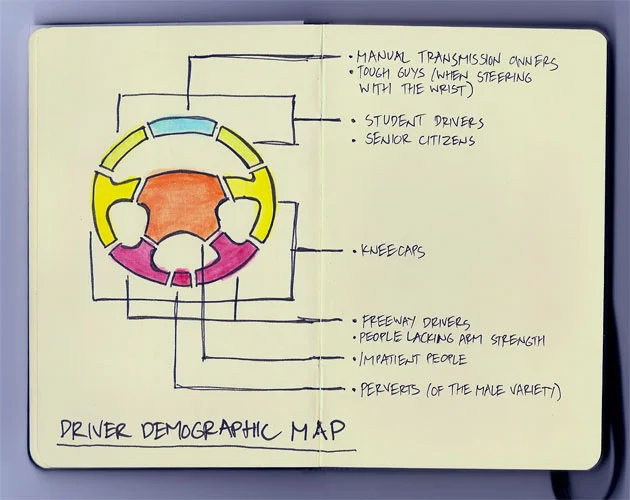 • MANUAL TRANSMISSION OWNERS
• TOUGH GUYS (WHEN STEERING
WITH THE WRIST)
• STUDENT DRIVERS
• SENIOR CITIZENS
• KNEECAPS
• FREEWAY DRIVERS
• PEOPLE LACKING ARM STRENGTH
• IMPATIENT PEOPLE
• PERVERTS (OF THE MALE VARIETY)
DRIVER DEMOGRAPHIC MAP